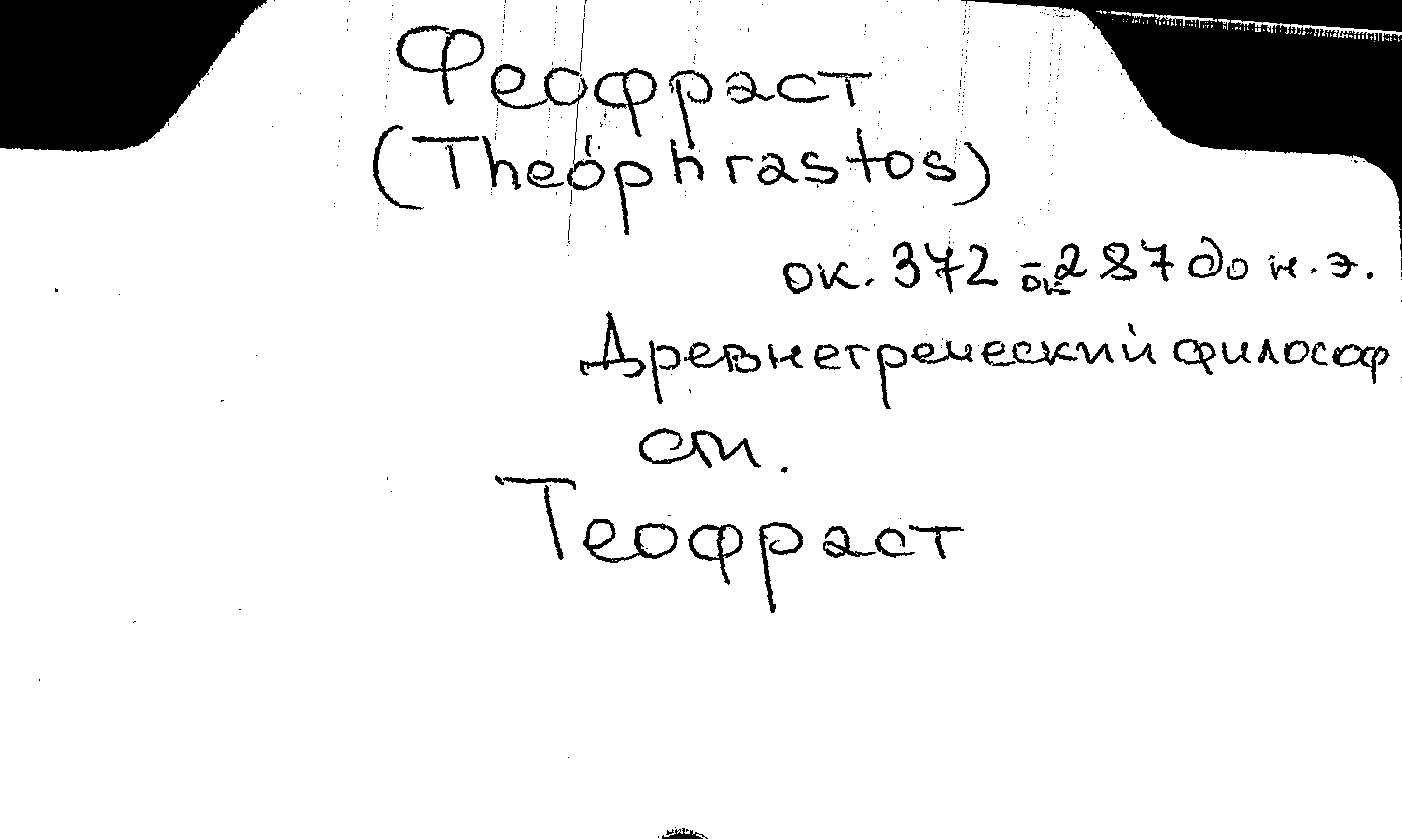 Феофраст
(Theóphrastos)
ок. 372 - ок 287 до н.э.
Древнегреческий философ
см.
Теофраст